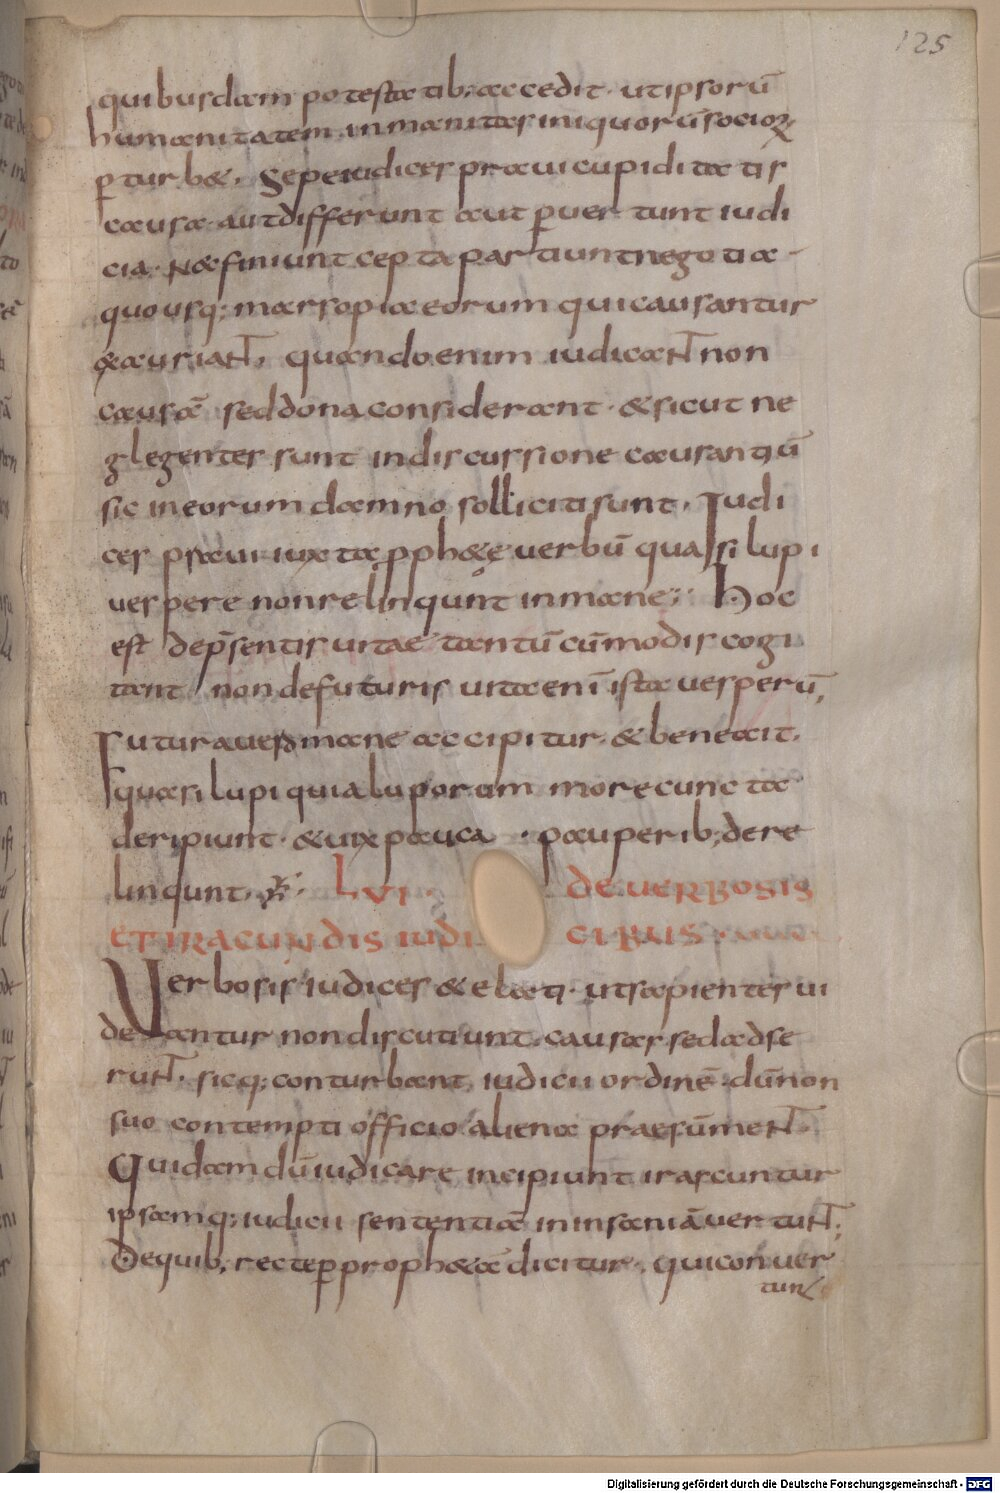 125
quibusdam potestatib; accedit · ut ipsorū
humanitatem inmanitas iniquorū socioꝝ
ꝑturb&. Sepe iudices praui cupiditatis
causa aut differunt aut ꝑuertunt iudi
cia. N& finiunt cepta partiunt negotia ·
quousq; marsopia eorum qui causantur
&auriaNT̄. quando enim iudicaNT̄ non
causā sed dona considerant · & sicut ne
glegenter sunt in discursione causantiū
sic in eorum damno solliciti sunt. Iudi
ces praui iuxta pph&ę uerbū quasi lupi
uespere non relinqunt in mane; Hoc
est de p̄sentis uitae tantū cūmodis cogi
tant non de futuris uita enī ista uesperū,
Futura uero mane accipitur. & bene ait.
quasi lupi quia luporum more cuncta
deripiunt · & uix pauca · pauperib; dere
linqunt.       LVI.       DE VERBOSIS
ET IRACUNDIS IUDICIBUS
Verbosis iudices & elati · ut sapientes ui
deantur non discutiunt. causas. sed adse
ruNT̄. sicq; conturbant iudicii ordinē · dū non
suo contempti officio aliena praesūmeNT̄.
Quidam dū iudicare incipiunt irascuntur
ipsamq; iudicii sententiā in insaniā uertuNT̄;
De quib; recte ꝑ proph&ā dicitur. qui conuer
tunt
Digitalisierung gefördert durch die Deutsche Forschungsgemeinschaft - DFG